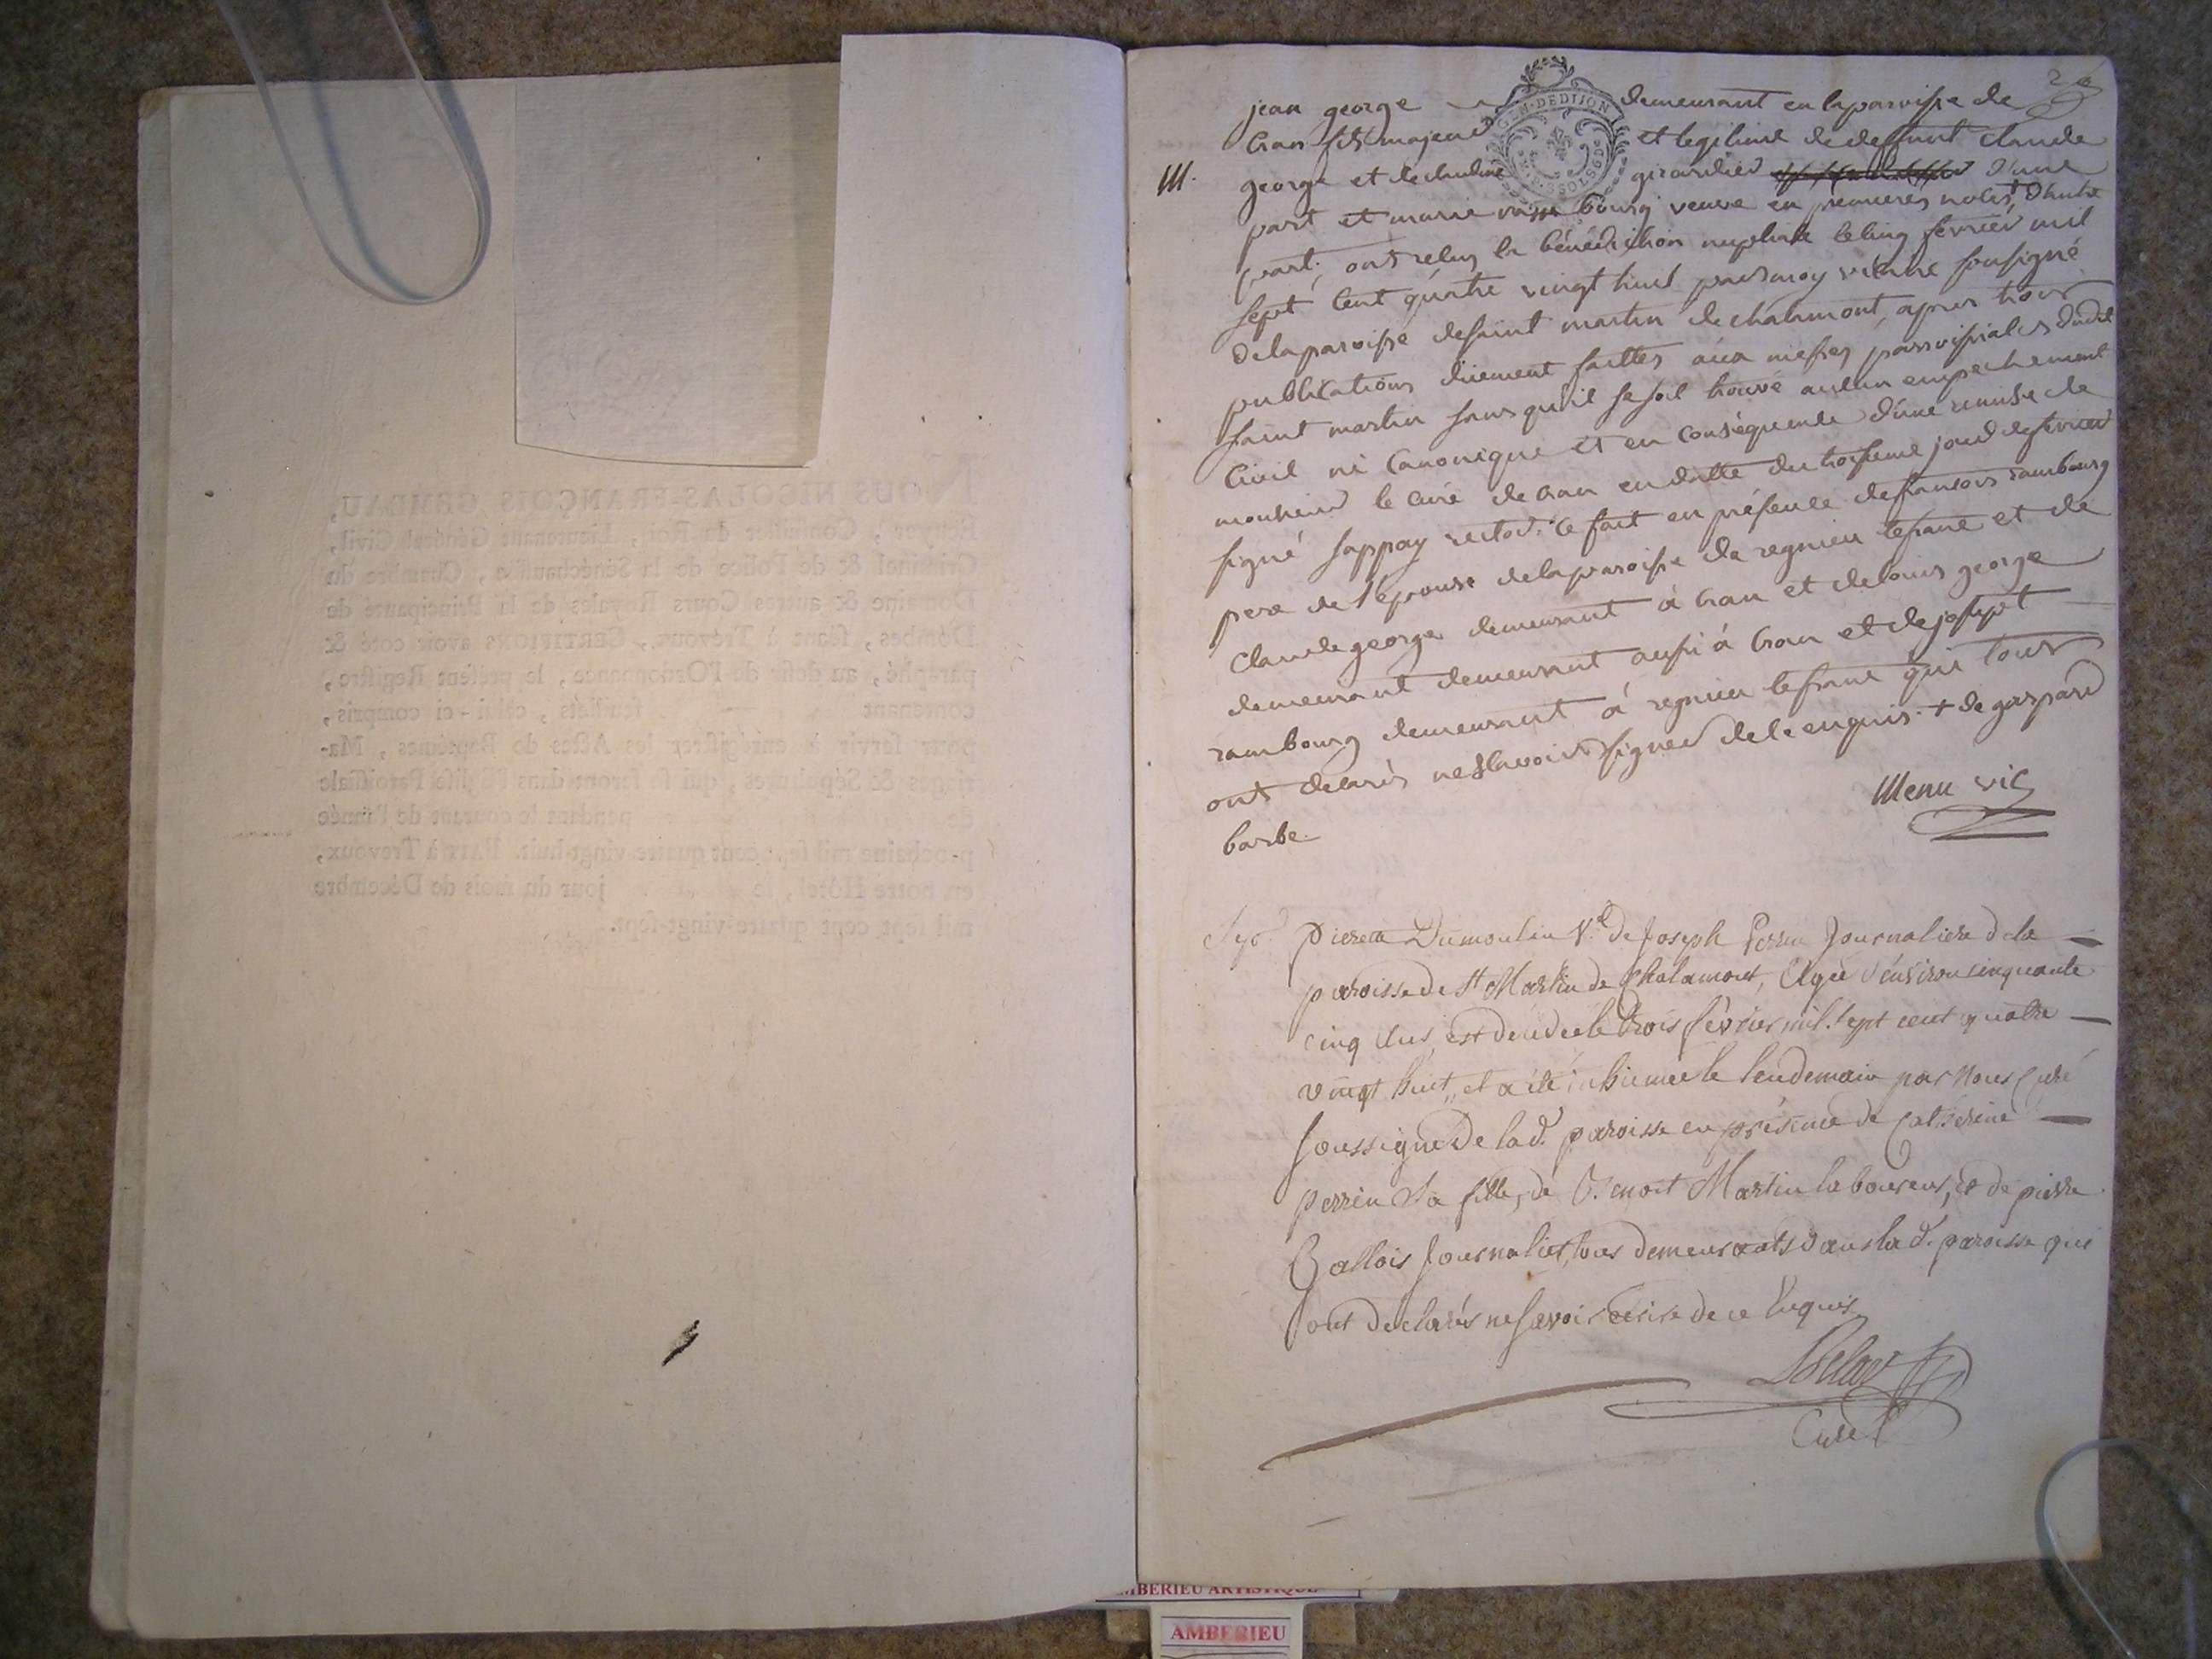 NOUS NICOLAS-FRANÇOIS GEMEAU,
Ecuyer, Conseiller du Roi, Lieutenant Général Civil,
Criminel & de Police de la Sénéchaussée, Chambre du
Domaine & autres Cours Royales de la Principauté de
Dombes, séant à Trévoux, CERTIFIONS avoir coté &
paraphé, au desir de l'Ordonnance, le présent Registre,
contenant feuillets, celui-ci compris,
pour servir à enrégistrer les Actes de Baptêmes, Ma-
riages & Sépultures, qui se feront dans l'Eglise Paroissiale
de pendant le courant de l'année
prochaine mil sept cent quatre-vingt-huit. FAIT à Trevoux,
en notre Hôtel, le jour du mois de Décembre
mil sept cent quatre-vingt-sept.
2
GEN. DE DIJON
jean george demeurant en la paroisse de
cran fils majeur et legitime de deffunt claude
M. george et de claudine girardier d'une
part et marie rambourg veuve en premieres noces, d'autre
part, ont reçu la bénédiction nuptiale le cinq février mil
sept cent quatre vingt huit par moy vicaire sousigné
de la paroisse de saint martin de chalamont, apres trois
publications duement faittes aux messes parroissiales dudit
saint martin sans qu'il se soit trouvé aucun empechement
civil ni canonique et en conséquence d'une remise de
monsieur le curé de cran en datte du troisieme jour de fevrier
signé sappay rector. ce fait en présence de francois rambourg
pere de l'épouse de la paroisse de regnieu le franc et de
claude george demeurant à cran et de louis george
demeurant demeurant aussi à cran et de josept
rambourg demeurant à regnieu le franc qui tous
ont declarés ne sçavoir signer de ce enquis. + de gaspard
barbe
Menu vic
Sep. Pierrette Dumoulin Ve. de Joseph Perrin Journaliere de la
paroisse de St Martin de Chalamont, Agée d'environ cinquante
cinq Ans, est decedée le trois février mil sept cent quatre
vingt huit, et a été inhumée le lendemain par Nous Curé
soussigné de lad. paroisse en présence de Catherine
perrin Sa fille, de Benoit Martin laboureur, et de pierre
Gallois Journalier, tous demeurants dans lad. paroisse qui
ont declarés ne Savoir écrire de ce Enquis
Curé
AMBERIEU ARTISTIQUE
AMBERIEU